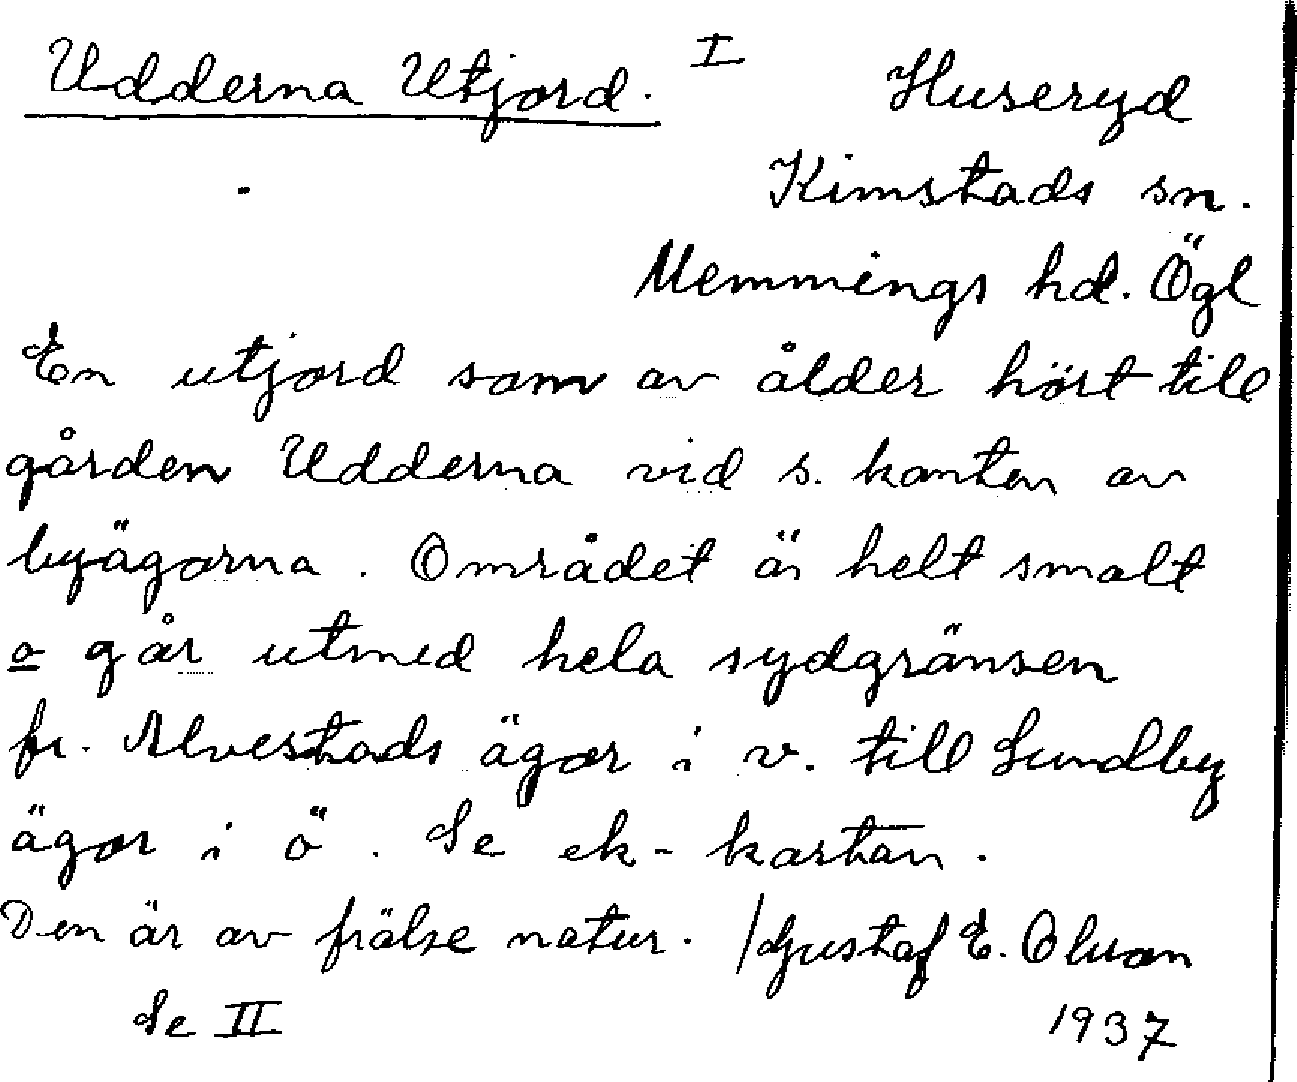 Udderna Utjord. I Huseryd
Kimstads sn.
Memmings hd. Ögl
En utjord som av ålder hört till
gården Udderna vid s. kanten av
byägorna. Området är helt smalt
o går utmed hela sydgränsen
fr. Alvestads ägor i v. till Sundby
ägor i ö. Se ek-kartan.
Den är av frälse natur. /Gustaf E. Olson
Se II 1937